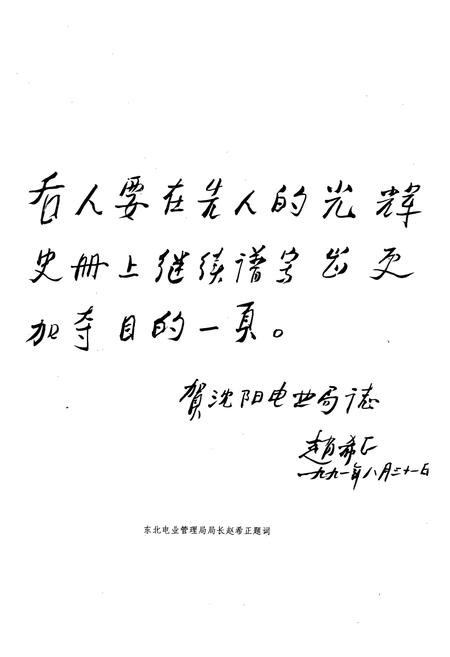 后人要在先人的光辉
史册上继续谱写出更
加夺目的一頁。
賀沈阳电业局志
赵希正
一九九一年八月三十一日
东北电业管理局局长赵希正题词